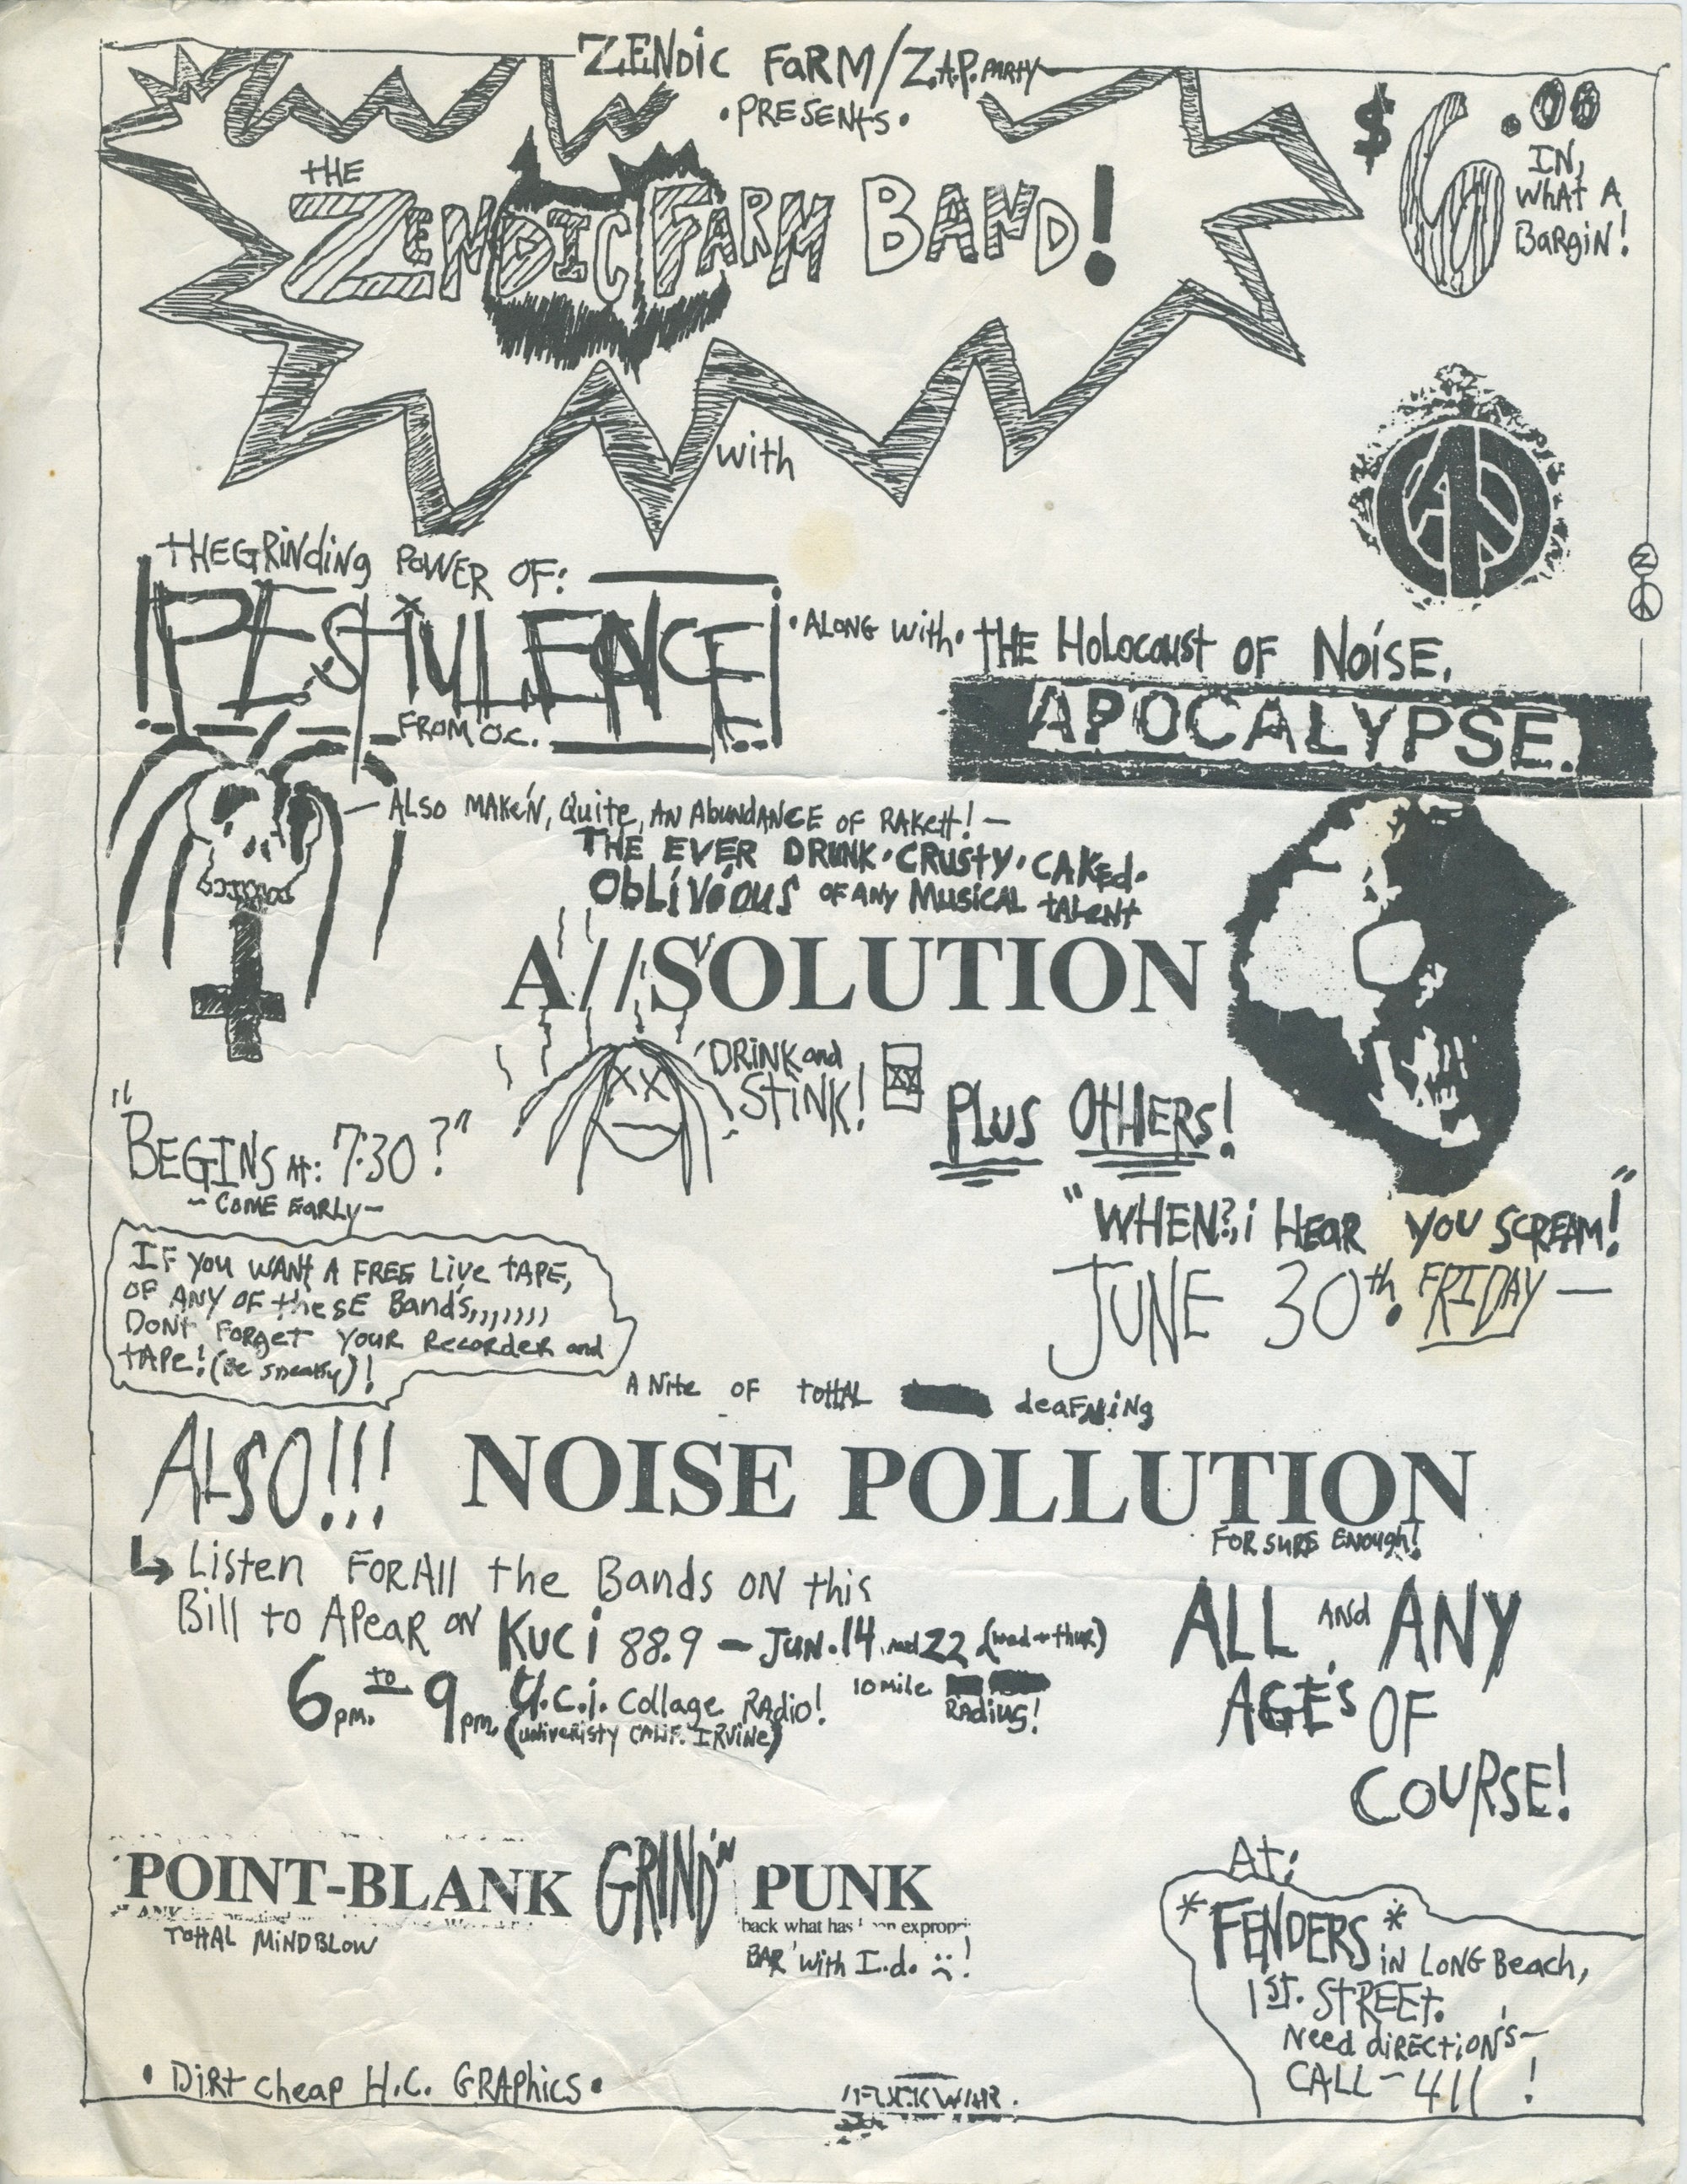 ZENDIC FARM/Z.A.P. PARTY
• PRESENTS •
THE
ZENDIC FARM BAND!
$6.00
IN,
WHAT A
BARGIN!
with
THE GRINDING POWER OF:
PESTULENCE
FROM O.C.
• ALONG with • THE HOLOCAUST OF NOISE,
APOCALYPSE.
— ALSO MAKE'N, Quite, AN AbUNDANCE OF RAKEtt! —
THE EVER DRUNK • CRUSTY • CAKEd •
OBLIVIOUS OF ANY MUSICAL tALENT
A//SOLUTION
'DRINK and
STINK!
XX
PLUS OTHERS!
"BEGINS At: 7:30?"
- COME EARLY -
"WHEN?, i HEAR YOU SCREAM!"
JUNE 30th. FRIDAY —
IF YOU WANT A FREE Live tAPE,
OF ANY OF these Bands,,,,,,,,
DONT FORGET YOUR RECORDER and
tAPE! (Be sneaky)!
A Nite OF tottAL deAFNiNg
NOISE POLLUTION
FOR SURE ENOUgh!
ALSO!!!
Listen FOR All the Bands ON this
Bill to APEAR ON KUCi 88.9 - JUN. 14 and 22 (wed + thur)
6pm. to 9pm. U.C.I. Collage RAdio! 10 mile RAdius!
(univeristy CALIF. IRVINE)
ALL ANd ANY
AGE'S OF
COURSE!
POINT-BLANK GRIND'N PUNK
back what has
TOttAL MINDBLOW
BAR with I.d. !
At:
* FENDERS * IN LONG Beach,
1ST. STREEt.
Need diRECtiON'S —
CALL - 411 !
• DiRt cheap H.C. GRAphics •
FUCK WAR.